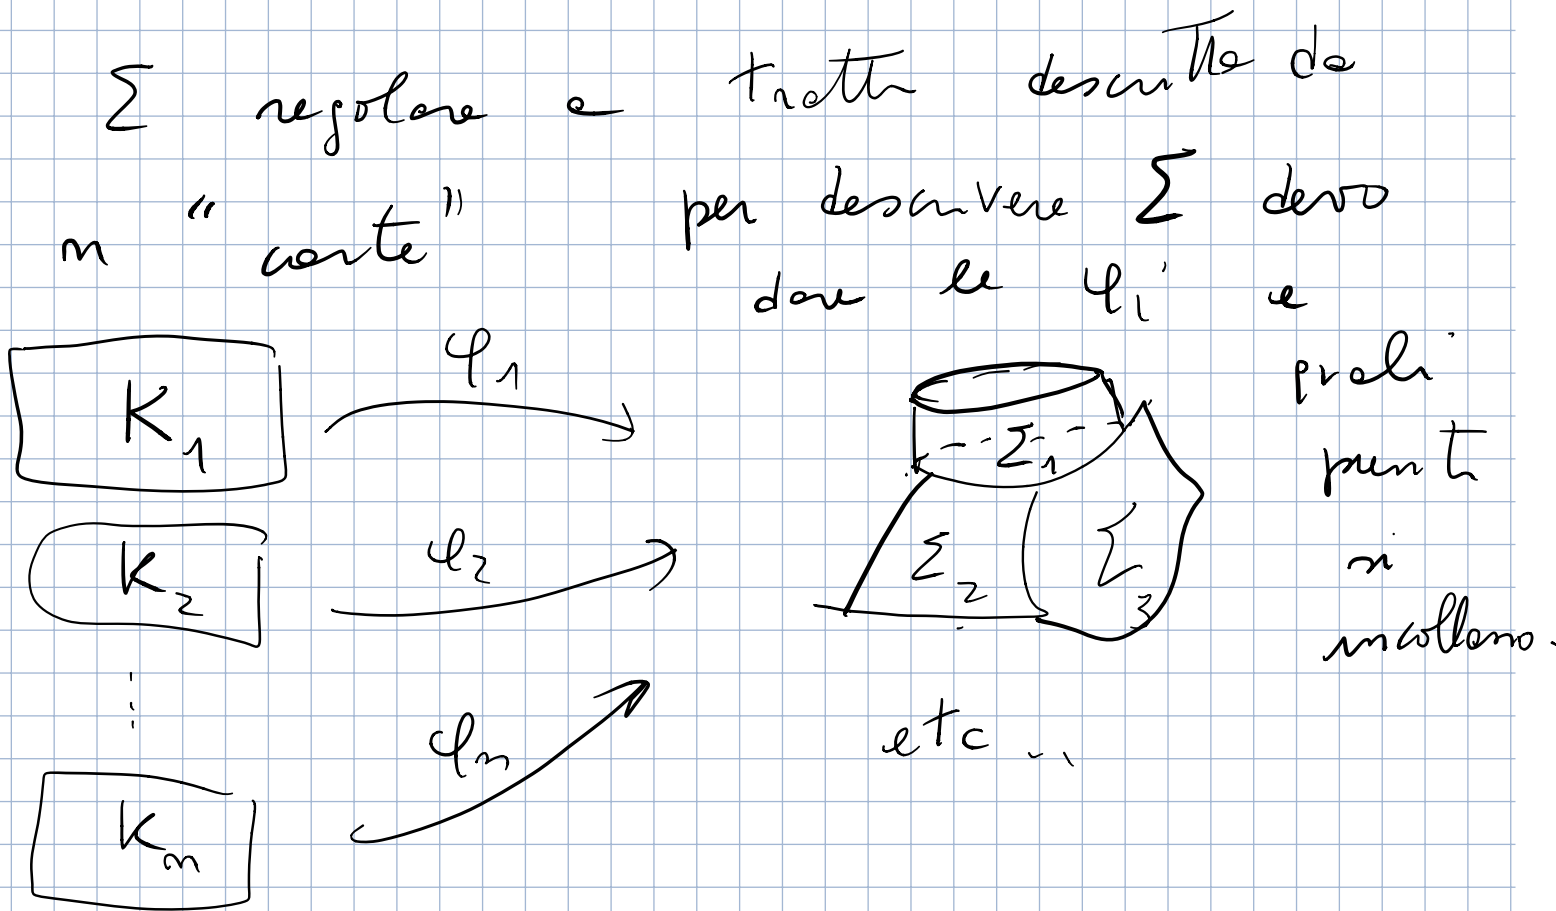 Σ regolare a tratti descritta da
n "carte" per descrivere Σ devo
dare le φi e
quali
punti
si
incollano.
K1 φ1
Σ1
K2 φ2
Σ2 Σ3
⋮
Kn φn
etc...